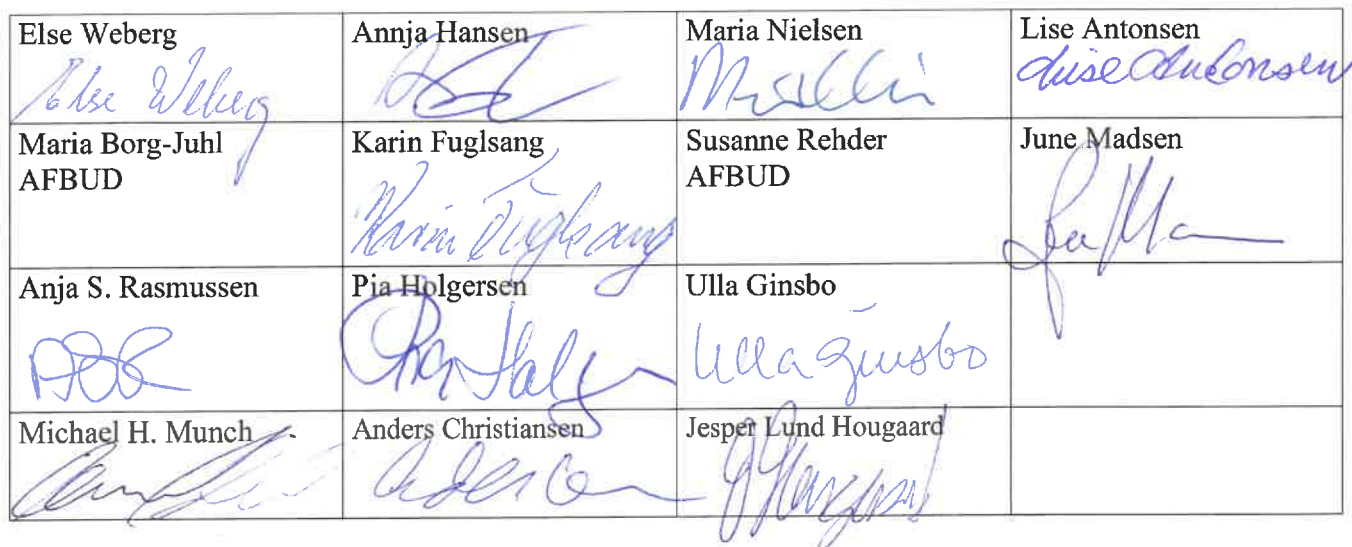 Else Weberg
Annja Hansen
Maria Nielsen
Lise Antonsen
Else Weberg
Lise Antonsen
Maria Borg-Juhl
AFBUD
Karin Fuglsang
Susanne Rehder
AFBUD
June Madsen
Karin Fuglsang
Anja S. Rasmussen
Pia Holgersen
Ulla Ginsbo
Ulla Ginsbo
Michael H. Munch
Anders Christiansen
Jesper Lund Hougaard